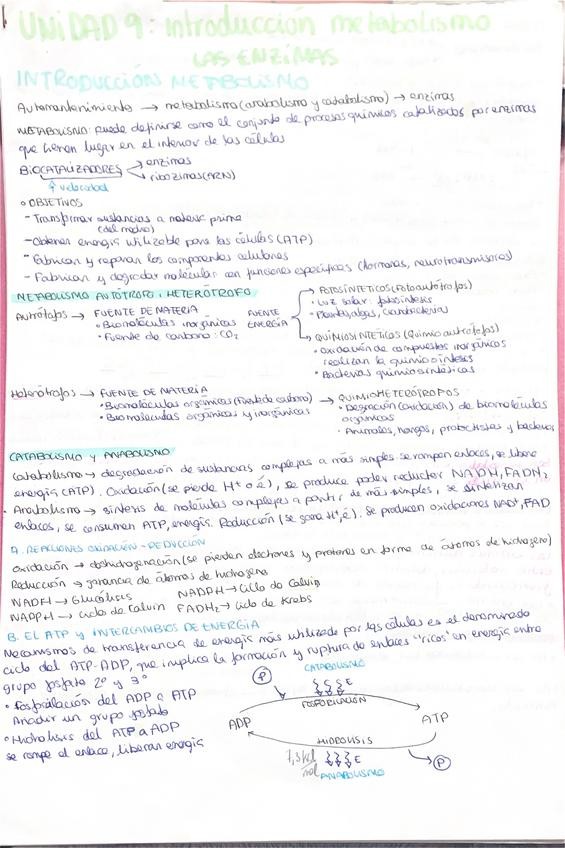 UNIDAD 9: Introducción metabolismo
LAS ENZIMAS
INTRODUCCIÓN METABOLISMO
Automantenimiento → metabolismo (anabolismo y catabolismo) → enzimas
METABOLISMO: puede definirse como el conjunto de procesos químicos catalizados por enzimas
que tienen lugar en el interior de las células
BIOCATALIZADORES → enzimas
→ ribozimas (ARN)
↑ velocidad
• OBJETIVOS
- Transformar sustancias a materia prima
(del medio)
- Obtener energía utilizable para las células (ATP)
- Fabricar y reparar los componentes celulares
- Fabrican y degradar moléculas con funciones específicas (hormonas, neurotransmisores)
METABOLISMO AUTÓTROFO Y HETERÓTROFO
Autótrofos → FUENTE DE MATERIA
• Biomoléculas inorgánicas
• Fuente de carbono: CO2
FUENTE ENERGÍA
→ FOTOSINTÉTICOS (Fotoautótrofos)
• Luz solar: fotosíntesis
• Plantas, algas, cianobacterias
→ QUIMIOSINTÉTICOS (Quimioautótrofos)
• Oxidación de compuestos inorgánicos
realizan la quimiosíntesis
• Bacterias quimiosintéticas
Heterótrofos → FUENTE DE MATERIA
• Biomoléculas orgánicas (Fuente de carbono)
• Biomoléculas orgánicas y inorgánicas
→ QUIMIOHETERÓTROFOS
• Degración (oxidación) de biomoléculas
orgánicas
• Animales, hongos, protoctistas y bacterias
CATABOLISMO Y ANABOLISMO
Catabolismo → degradación de sustancias complejas a más simples se rompen enlaces, se libera
energía (ATP). Oxidación (se pierde H+ o é), se produce poder reductor NADH, FADH2
• Anabolismo → síntesis de moléculas complejas a partir de más simples, se sintetizan
enlaces, se consumen ATP, energía. Reducción (se gana H+, é). Se producen oxidaciones NAD+, FAD
A. REACCIONES OXIDACIÓN - REDUCCIÓN
Oxidación → deshidrogenación (se pierden electrones y protones en forma de átomos de hidrógeno)
Reducción → ganancia de átomos de hidrógeno
NADH → Glucólisis NADPH → Ciclo de Calvin
NAPPH → ciclo de Calvin FADH2 → ciclo de Krebs
B. EL ATP y INTERCAMBIOS DE ENERGÍA
Mecanismos de transferencia de energía más utilizado por las células es el denominado
ciclo del ATP-ADP, que implica la formación y ruptura de enlaces "ricos" en energía entre
grupo fosfato 2º y 3º
• Fosforilación del ADP a ATP
Añadir un grupo fosfato
• Hidrólisis del ATP a ADP
se rompe el enlace, liberan energía
CATABOLISMO
P
E
FOSFORILACIÓN
ADP
ATP
HIDROLISIS
E
P
ANABOLISMO